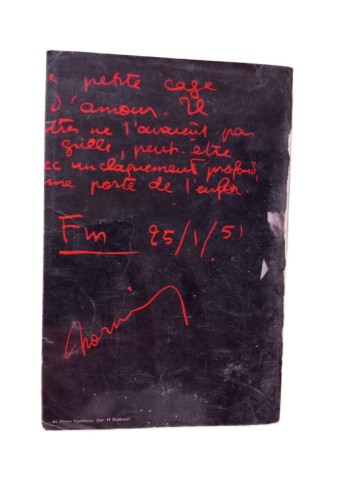 petite cage
d'amour. Il
ttes ne l'avaient pas
grille, peut-être
ec un claquement profond,
me porte de l'enfer.
Fin 25/1/51